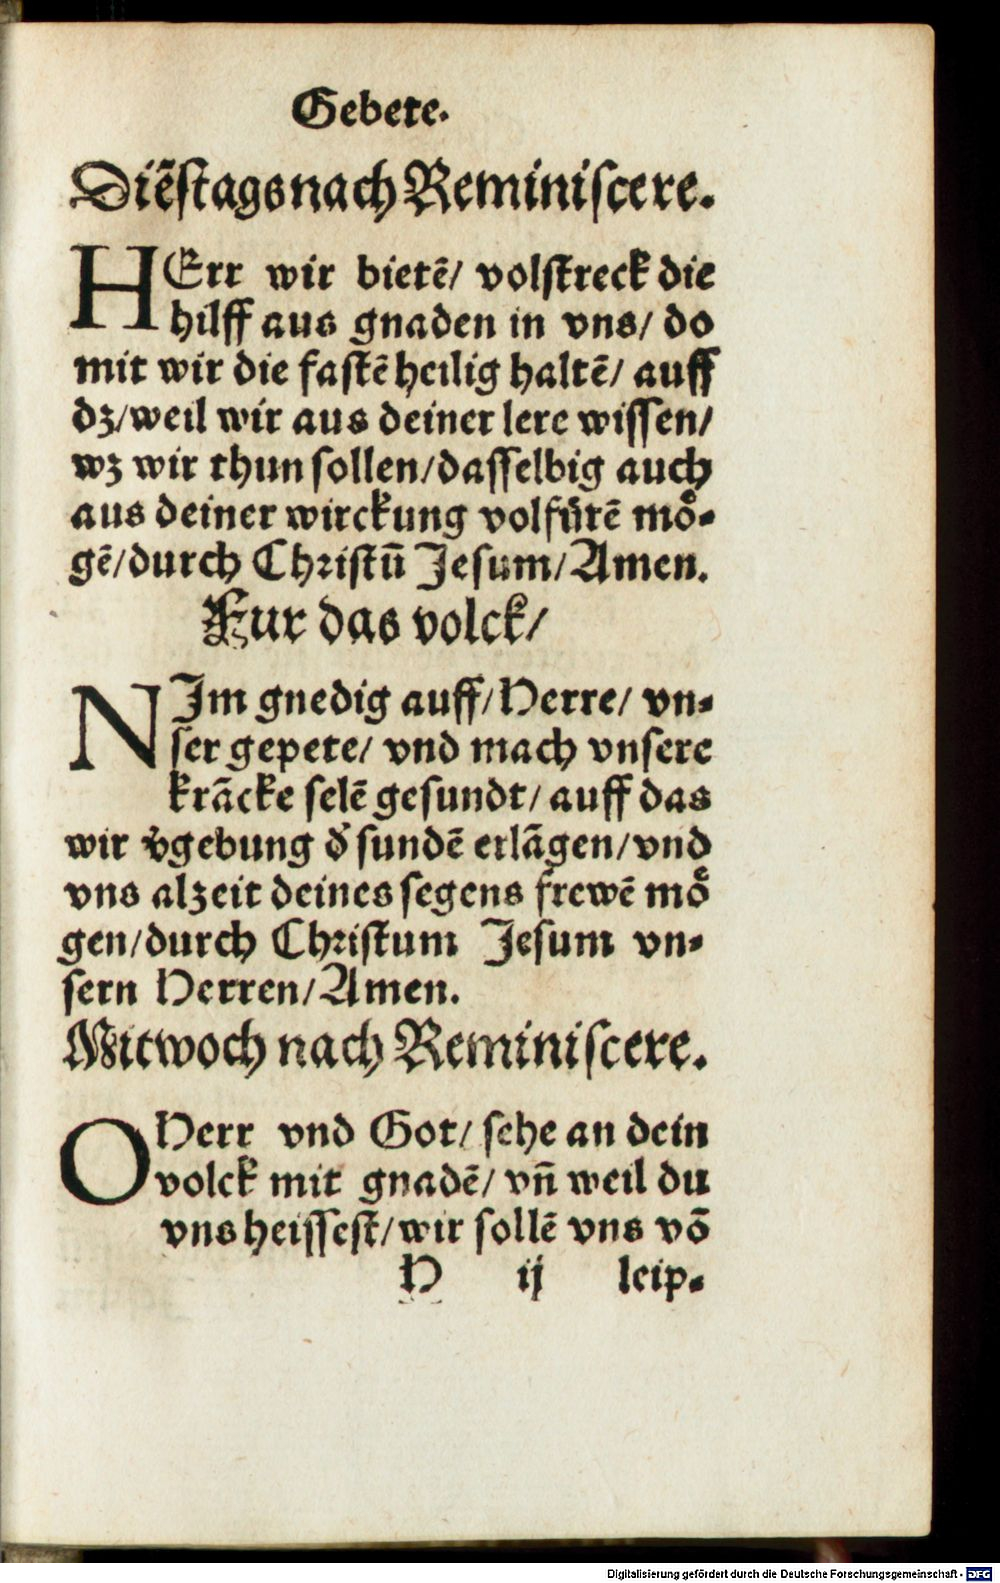 Gebete.
Diẽstags nach Reminiscere.
HErr wir bietẽ/ volstreck die
hilff aus gnaden in vns/ do
mit wir die fastẽ heilig haltẽ/ auff
dz/weil wir aus deiner lere wissen/
wz wir thun sollen/dasselbig auch
aus deiner wirckung volfürẽ moͤ-
gẽ/durch Christũ Jesum/Amen.
Fur das volck/
NJm gnedig auff/Herre/ vn-
ser gepete/ vnd mach vnsere
krãcke selẽ gesundt/ auff das
wir v̄gebung d̄ sundẽ erlãgen/vnd
vns alzeit deines segens frewẽ moͤ
gen/durch Christum Jesum vn-
sern Herren/Amen.
Mitwoch nach Reminiscere.
O Herr vnd Got/ sehe an dein
volck mit gnadẽ/ vñ weil du
vns heissest/wir sollẽ vns võ
H ij leip-
Digitalisierung gefördert durch die Deutsche Forschungsgemeinschaft - DFG